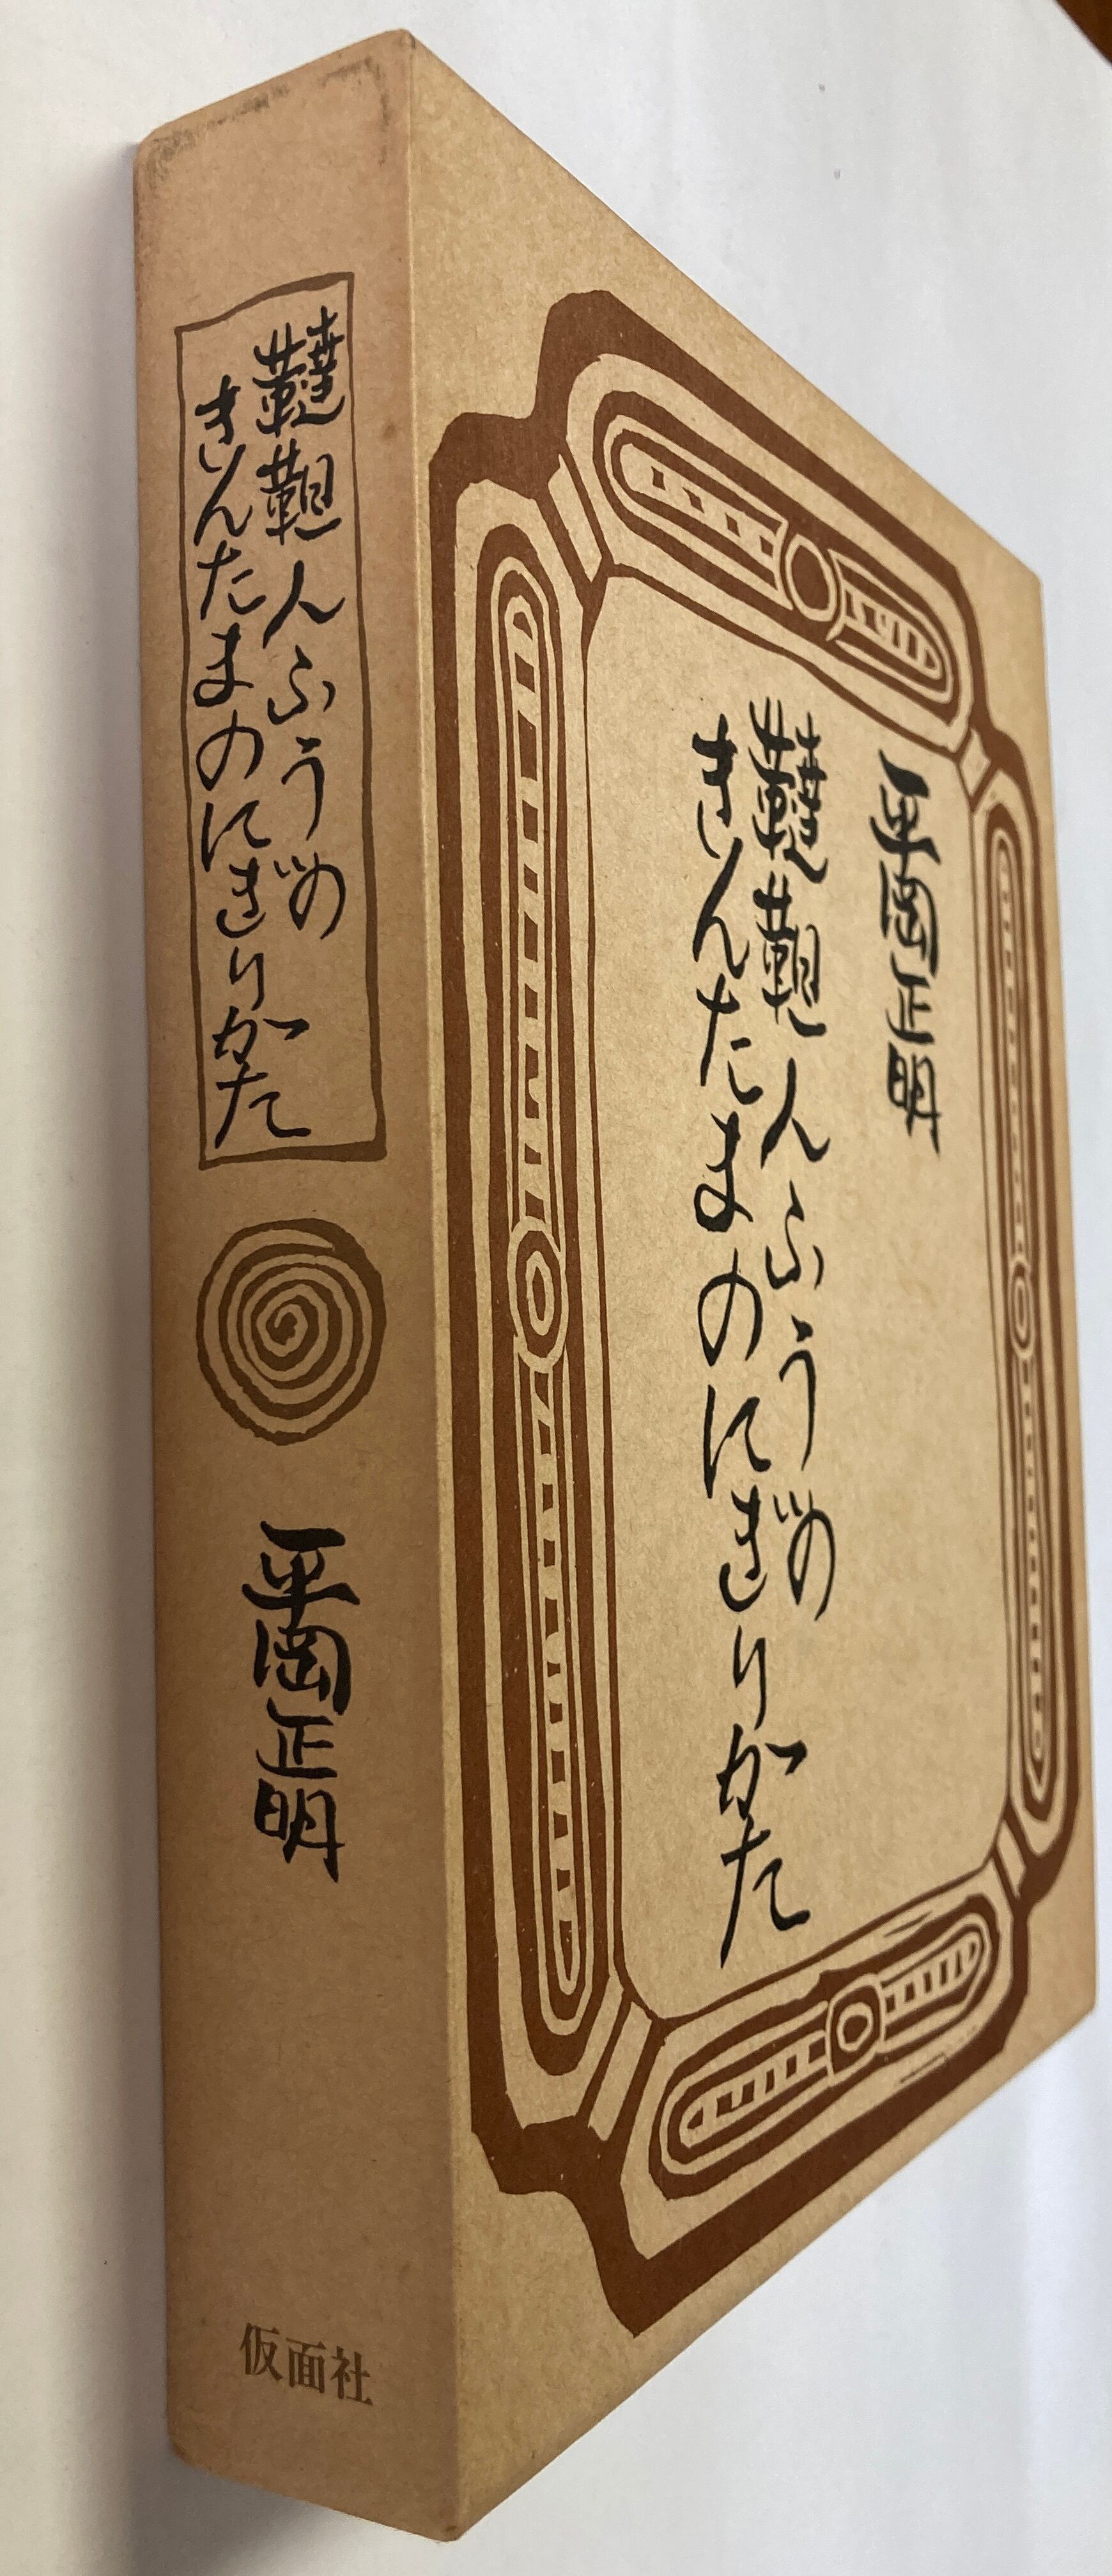 平岡正明
韃靼人ふうの
きんたまのにぎりかた
韃靼人ふうの
きんたまのにぎりかた
平岡正明
仮面社